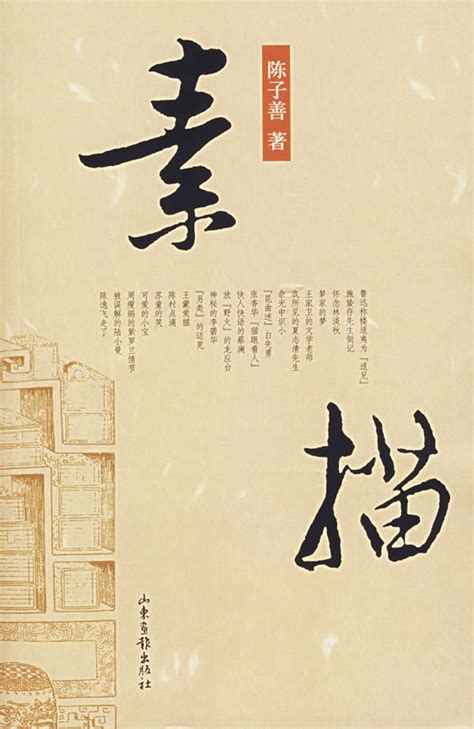 素描
陈子善 著
鲁迅称楼适夷为“适兄”
施蛰存先生侧记
怀念林淡秋
梦家的梦
王家卫的文学老师
我所见的夏志清先生
余光中识小
“昆曲迷”白先勇
张香华“猫眼看人”
快人快语的蔡澜
放“野火”的龙应台
神秘的李碧华
“另类”的迈克
王蒙爱猫
陈村点滴
苏童的笑
可爱的小宝
周瘦鹃的紫罗兰情节
被误解的陆小曼
陈逸飞走了
山东画报出版社